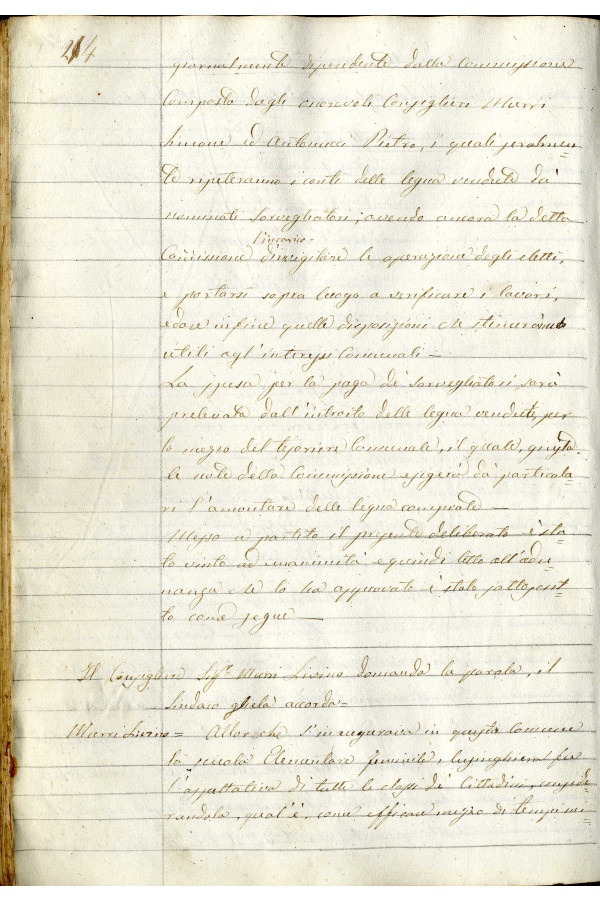 214
giornalmente dipendente dalla Commissione
composta dagli onorevoli Consiglieri Murri
Simone ed Antonucci Pietro, i quali
te ripeteranno i conti delle legna vendute da'
nominati sorvegliatori; avendo ancora la detta
l'incarico
Com̄issione d'invigilare le operazioni degli eletti,
e portarsi sopra luogo a verificare i lavori,
e dare infine quelle disposizioni che stimeranno
utili agl'interessi Comunali —
La spesa per la paga de' sorvegliatori sarà
prelevata dall'introito delle legna vendute, per
lo mezzo del tesoriere Comunale, il quale, giusta
le note della Commissione esigerà da' particola=
ri l'amontare delle legna comprate —
Messo a partito il presente deliberato è sta=
to vinto ad unanimità e quindi letto all'adu=
nanza che lo ha approvato è stato sottoscrit=
to come segue —
Il Consigliere Sigr. Murri Livino domanda la parola, il
Sindaco gliela accorda=
Murri Livino= Allor che s'inaugurava in questa Comune
la scuola Elementare feminile, lusinghiera fu
l'aspettativa di tutte le classi de' Cittadini, conside=
randola, qual'è, come efficace mezzo di